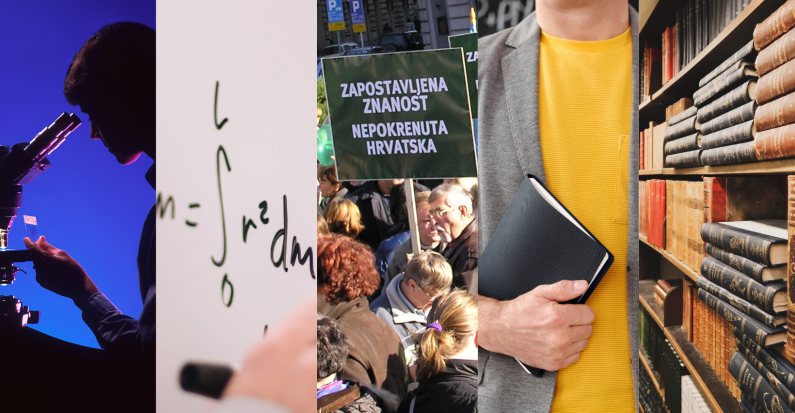 L
m = ∫ r² dm
0
P P
ZAPOSTAVLJENA
ZNANOST
NEPOKRENUTA
HRVATSKA
ZA